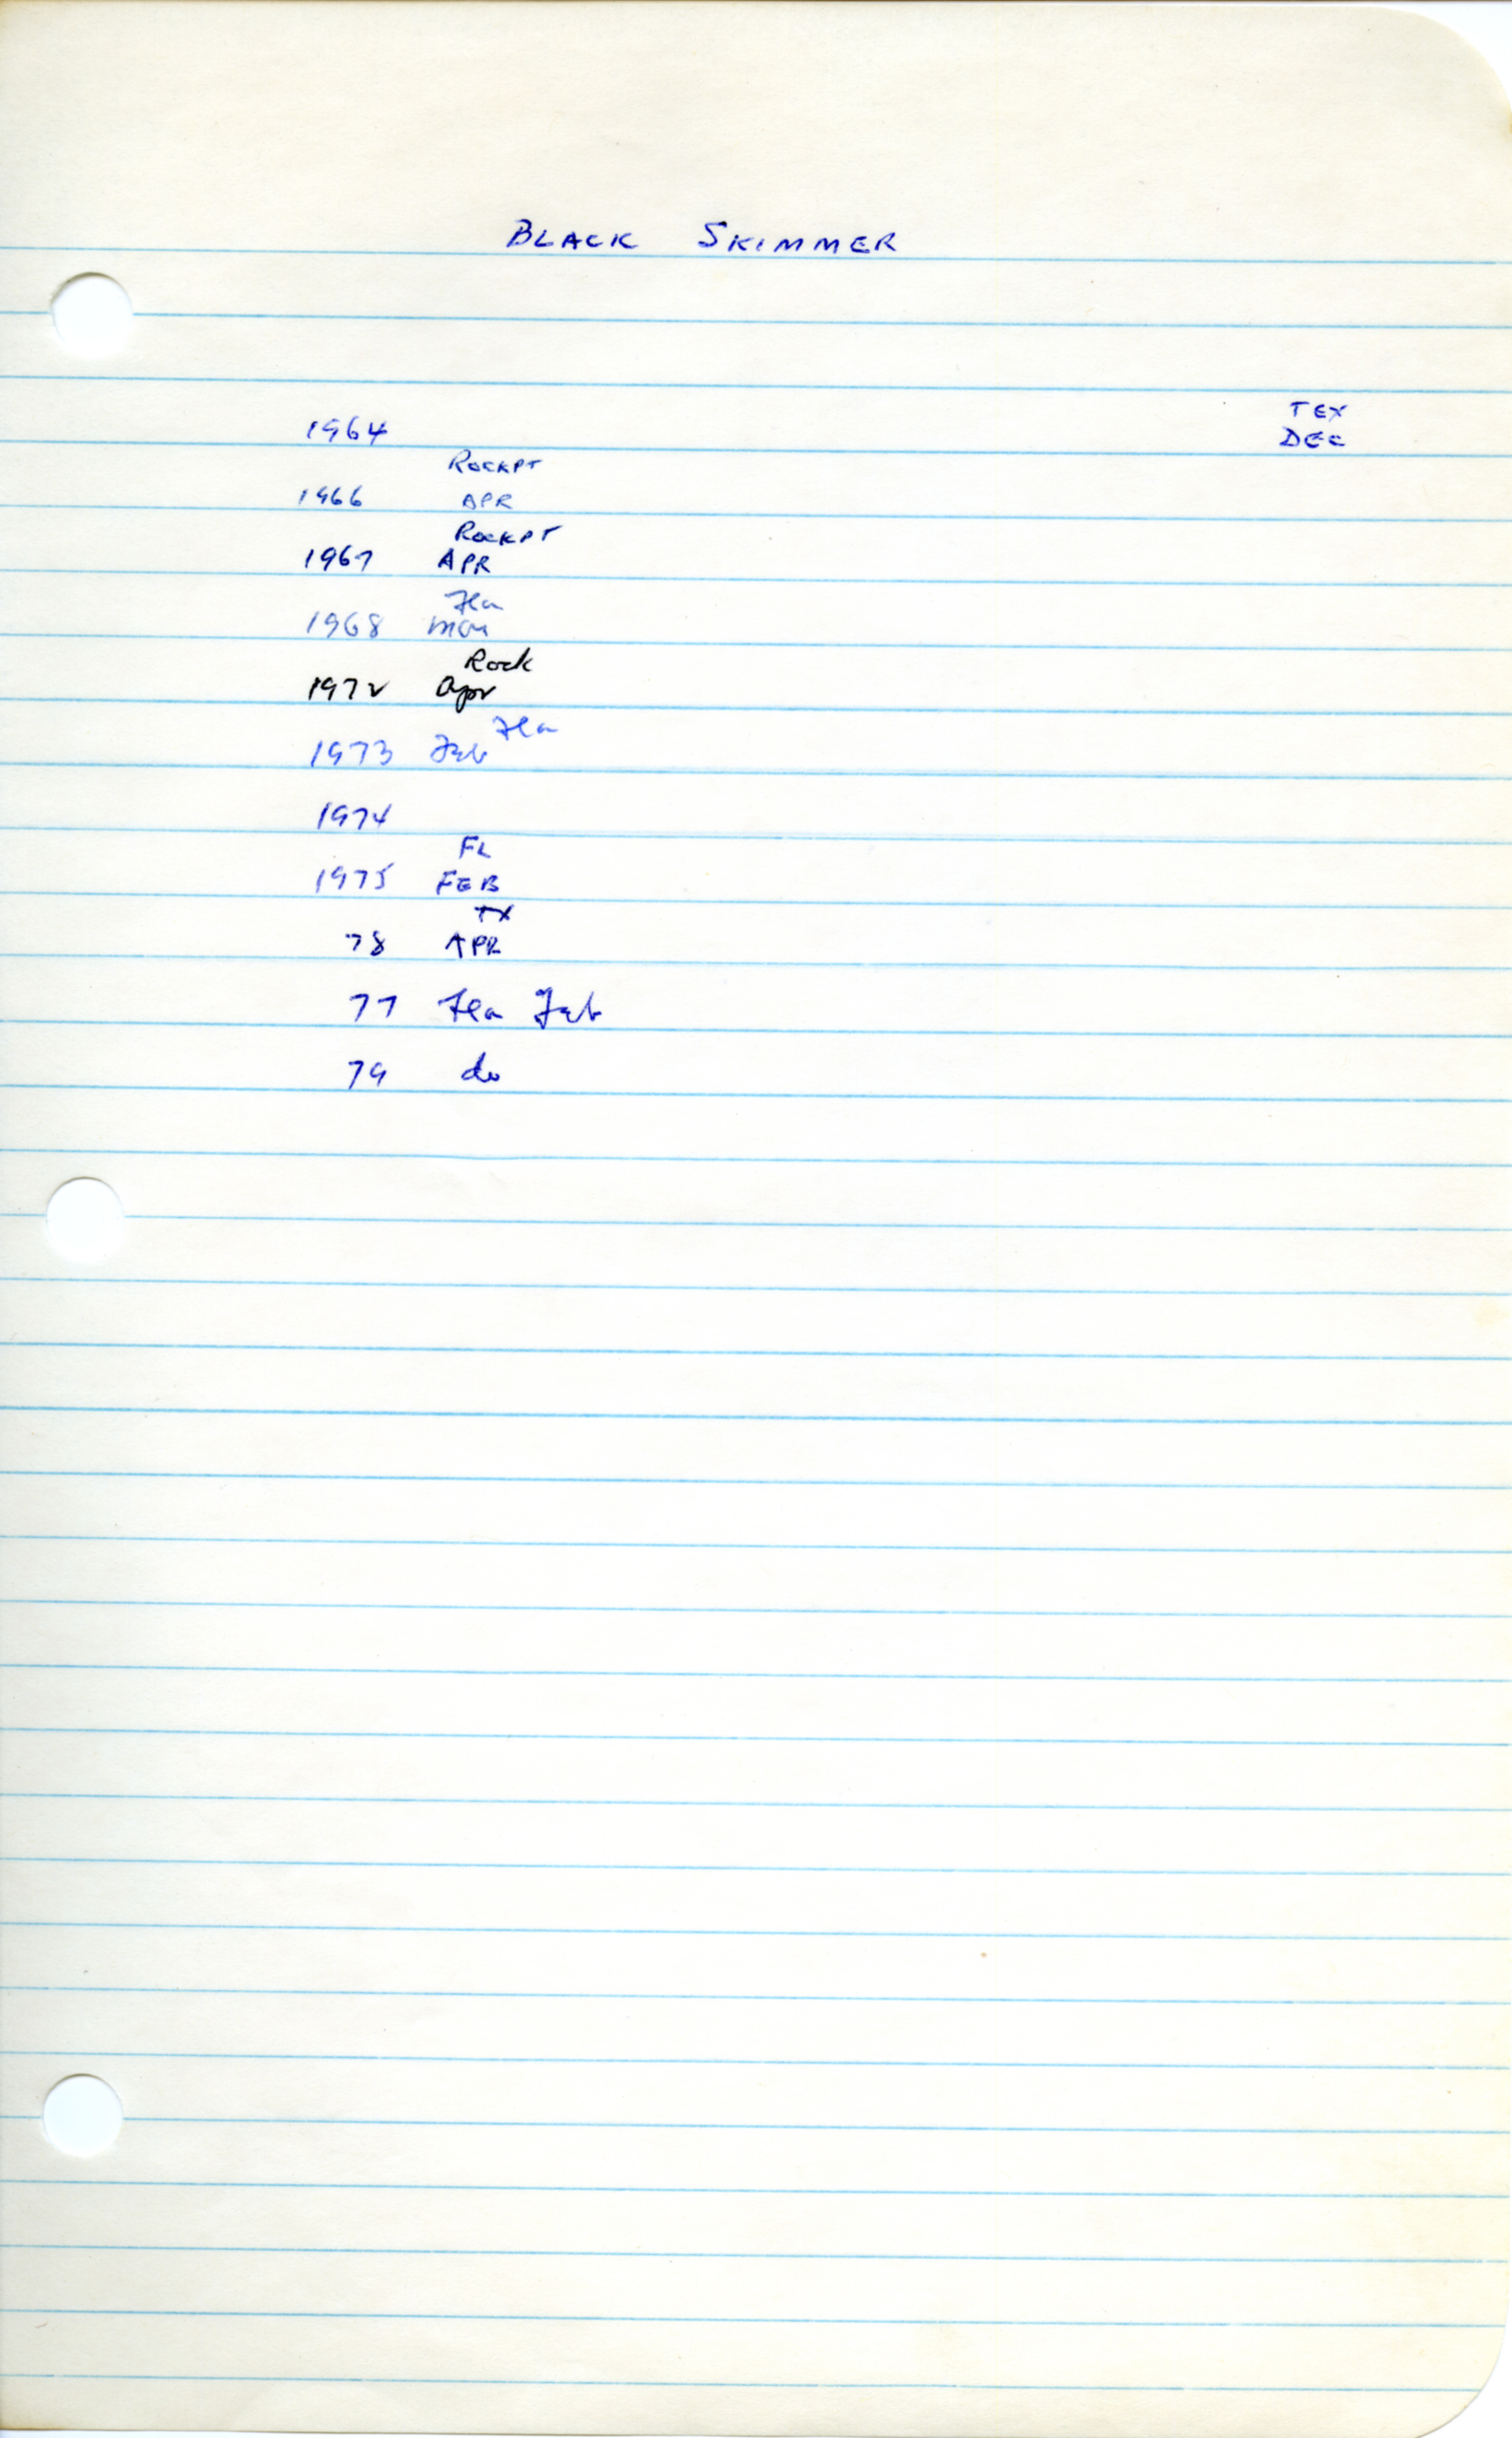 BLACK SKIMMER
TEX
1964 DEC
ROCKPT
1966 APR
ROCKPT
1967 APR
Fla
1968 Mar
Rock
1972 Apr
Fla
1973 Feb
1974
FL
1975 FEB
TX
78 APR
77 Fla Feb
79 do